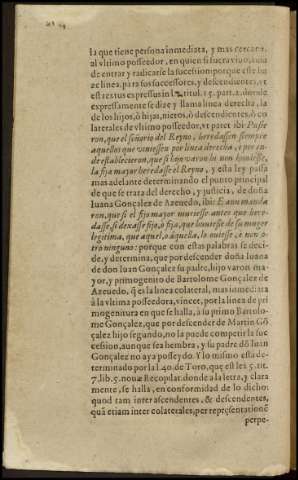 la que tiene persona inmediata, y mas cercana
al vltimo posseedor, en quien si fuera viuo, auia
de entrar y radicarse la sucession porque este haze
linea, para sus successores, y descendientes, vt
est textus expressus in l. 2. titul. 15. part. 2. donde
expressamente se dize y llama linea derecha, la
de los hijos, ò hijas, nietos, ò descendientes, ò co
laterales de vltimo posseedor, vt patet ibi Pusie
ron, que el señorio del Reyno, heredassen siempre
aquellos que viniessen por linea derecha, e por en-
de establecieron, que si hijo varon hi non houiesse,
la fija mayor heredasse el Reyno, y esta ley passa
mas adelante determinando el punto principal
de que se trata del derecho, y justicia, de doña
Iuana Gonçalez de Azeuedo, ibi: E aun manda
ron, que si el fijo mayor muriesse antes que here-
dasse, si dexasse fijo, o fija, que houiesse de su muger
legitima, que aquel, o aquella, lo ouiesse e non o-
tro ninguno: porque con estas palabras se deci-
de, y determina, que por descender doña Iuana
de don Iuan Gonçalez su padre, hijo varon ma-
yor, y primogenito de Bartolome Gonçalez de
Azeuedo, q̃ es la linea colateral, mas inmediata
à la vltima posseedora, vincet, por la linea de pri
mogenitura en que se halla, à su primo Bartolo-
me Gonçalez, que por descender de Martin Gõ
çalez hijo segundo, no la puede competir la suc
cession, aunque sea hembra, y su padre dõ Iuan
Gonçalez no aya posseydo. Y lo mismo està de-
terminado por la l. 40. de Toro, que est ley 5. tit.
7. lib. 5. nouæ Recopilat. donde à la letra, y clara
mente, se halla, en conformidad de lo dicho
quod tam inter ascendentes, & descendentes,
quã etiam inter colaterales, per repręsentationẽ
perpe-